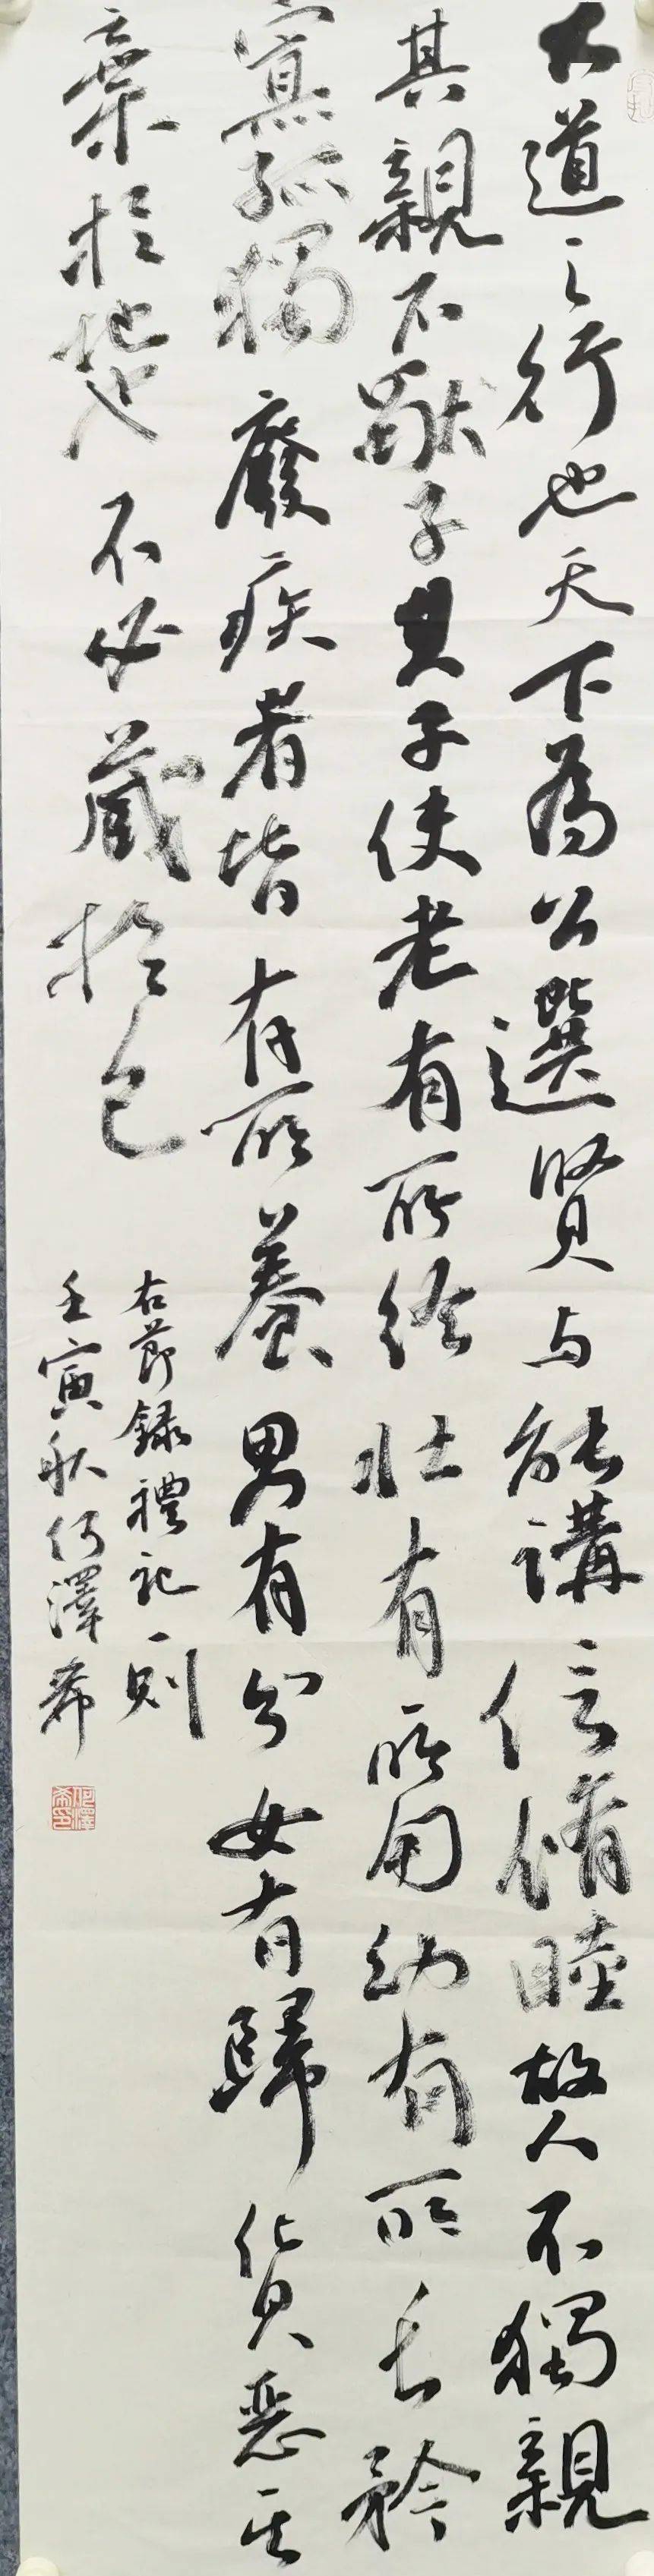 大道之行也天下為公選賢与能講信脩睦故人不獨親
其親不獨子其子使老有所終壯有所用幼有所長矜
寡孤獨廢疾者皆有所養男有分女有歸貨惡其
棄於地也不必藏於己
右節錄禮記一則
壬寅秋何澤希
何澤希印